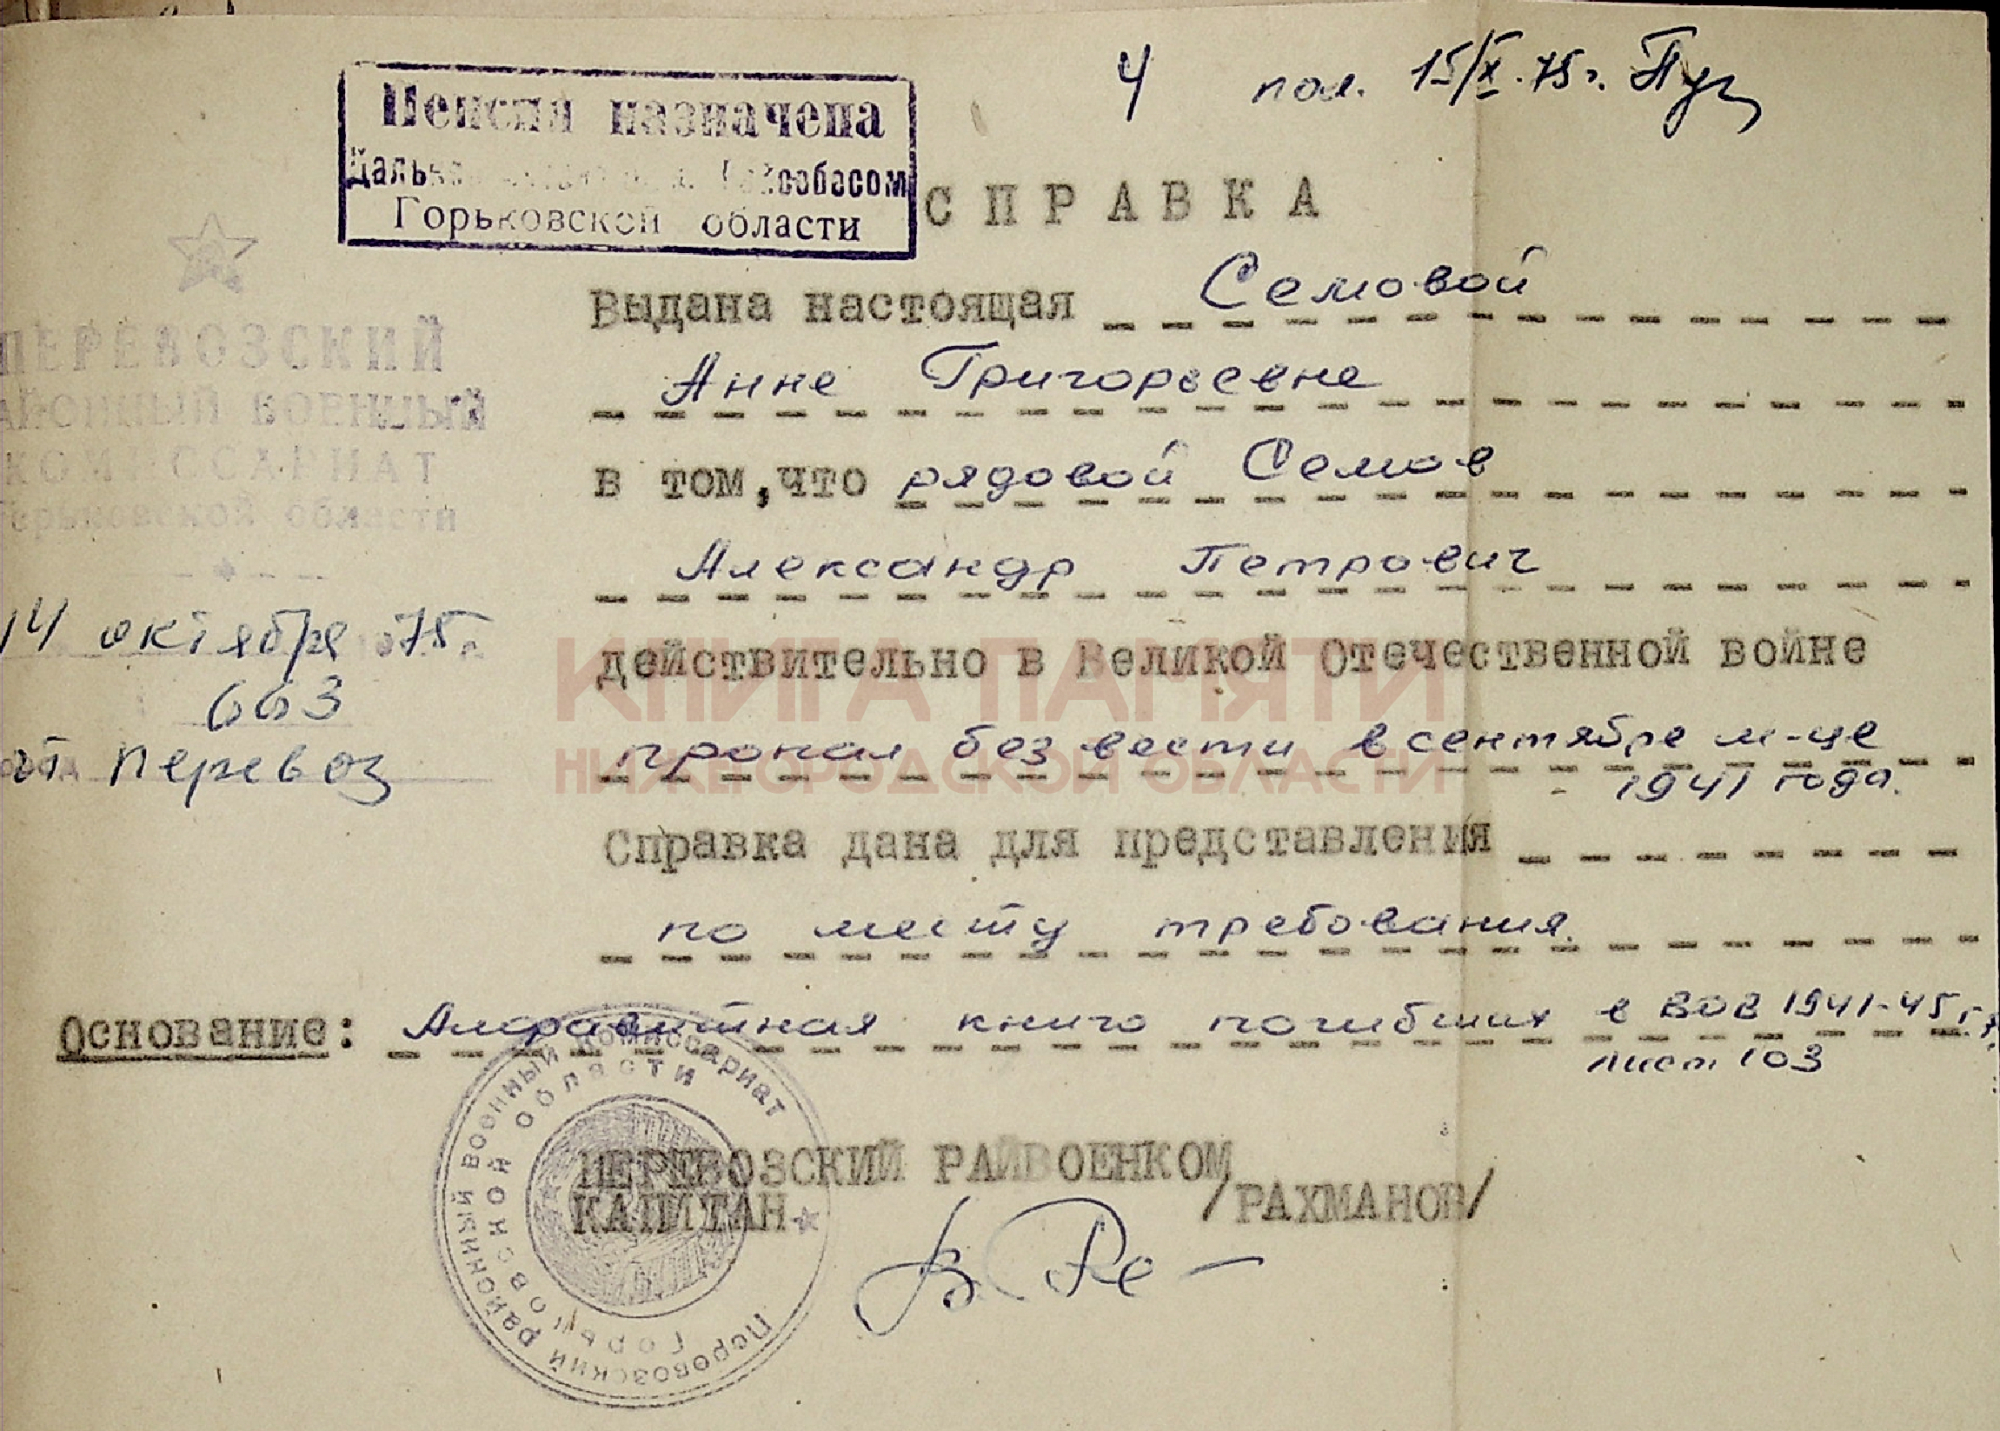 4 пол. 15/X.75г.
Пенсия назначена
Райсобесом
Горьковской области
СПРАВКА
ПЕРЕВОЗСКИЙ
РАЙОННЫЙ ВОЕННЫЙ
КОМИССАРИАТ
Горьковской области
14 октября 1975 г.
663
Перевоз
Выдана настоящая Семовой
Анне Григорьевне
в том, что рядовой Семов
Александр Петрович
действительно в Великой Отечественной войне
пропал без вести в сентябре м-це
1941 года.
Справка дана для представления
по месту требования.
Основание: Алфавитная книга погибших в ВОВ 1941-45 г.г.
лист 103
ПЕРЕВОЗСКИЙ РАЙВОЕНКОМ
КАПИТАН /РАХМАНОВ/
Перевозский районный военный комиссариат
Горьковской области
КНИГА ПАМЯТИ
НИЖЕГОРОДСКОЙ ОБЛАСТИ